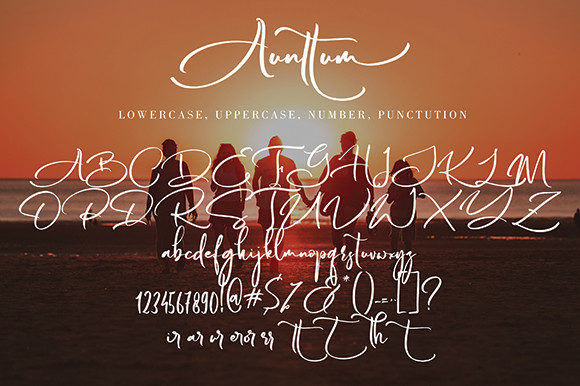 Aunttum
LOWERCASE, UPPERCASE, NUMBER, PUNCTUTION
ABCDEFGHIJKLM
OPQRSTUVWXYZ
abcdefghijklmnopqrstuvwxyz
1234567890!@#$%&*()_=-:[]?
ir ar ur er or rr tt T Th T